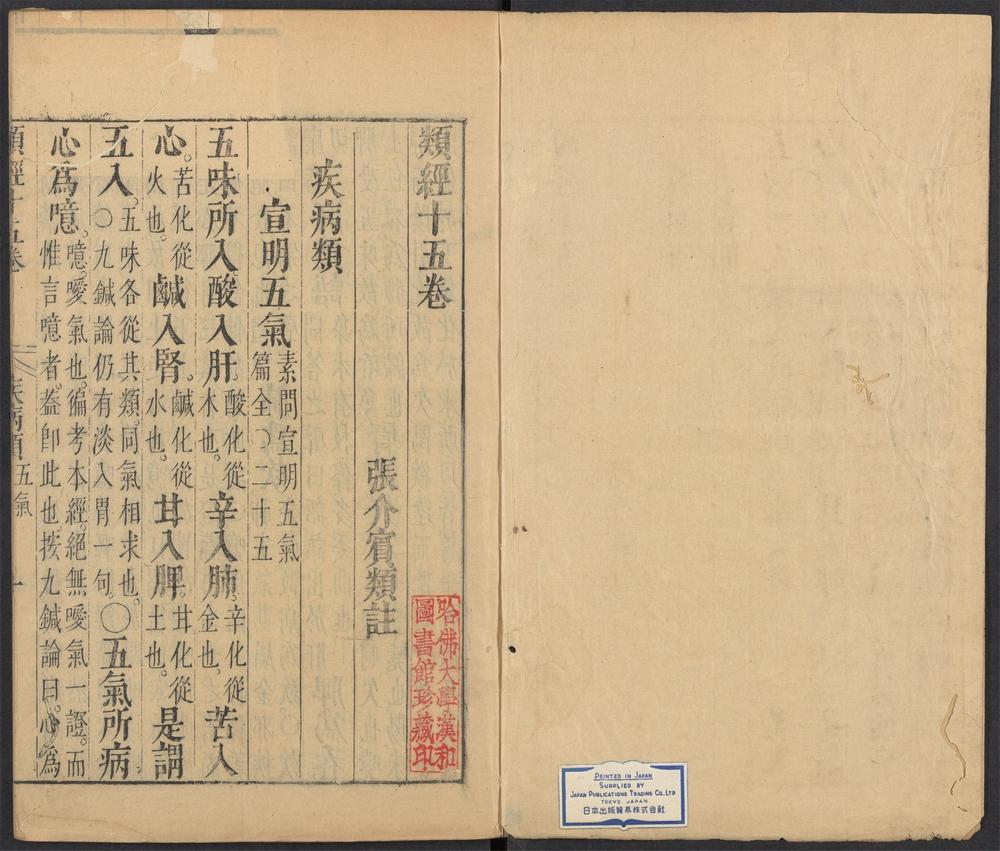 類經十五卷
張介賓類註
疾病類
宣明五氣素問宣明五氣篇全○二十五
五味所入酸入肝。酸化從木也。辛入肺。辛化從金也。苦入
心。苦化從火也。鹹入腎。鹹化從水也。甘入脾。甘化從土也。是謂
五入。五味各從其類。同氣相求也。○九鍼論仍有淡入胃一句。○五氣所病
心爲噫。噫。噯氣也。徧考本經。絕無噯氣一證。而惟言噫者。葢卽此也。按九鍼論曰。心爲
類經十五卷 疾病類 五氣 一
哈佛大學漢和
圖書館珍藏印
PRINTED IN JAPAN
SUPPLIED BY
JAPAN PUBLICATIONS TRADING CO., LTD
TOKYO JAPAN
日本出版貿易株式会社